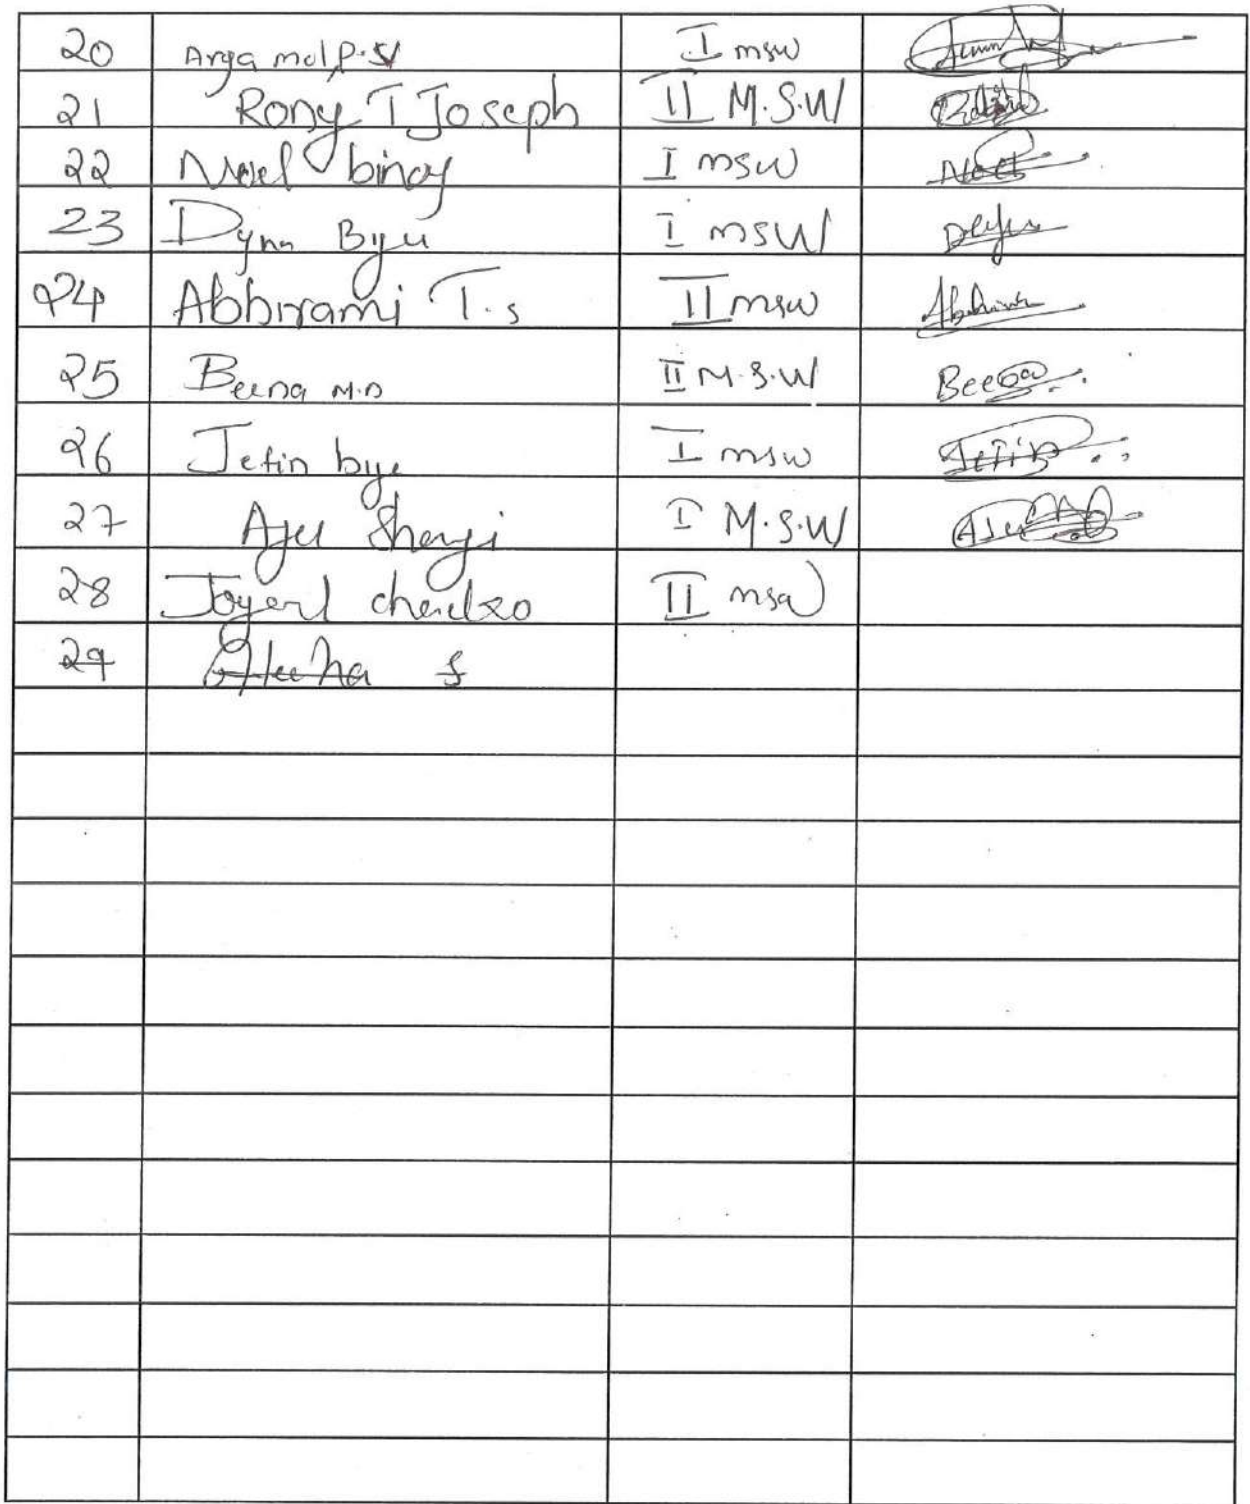 20 Arya mol P.S I msw
21 Rony T Joseph II M.S.W
22 Noel binoy I msw Noel
23 Dyna Biju I msW
24 Abhirami T.s II msw Abhirami
25 Beena M.D II M.S.W Beena
26 Jefin biju I msw Jefin
27 Aju Shenji I M.S.W Aju
28 II msw
29 S